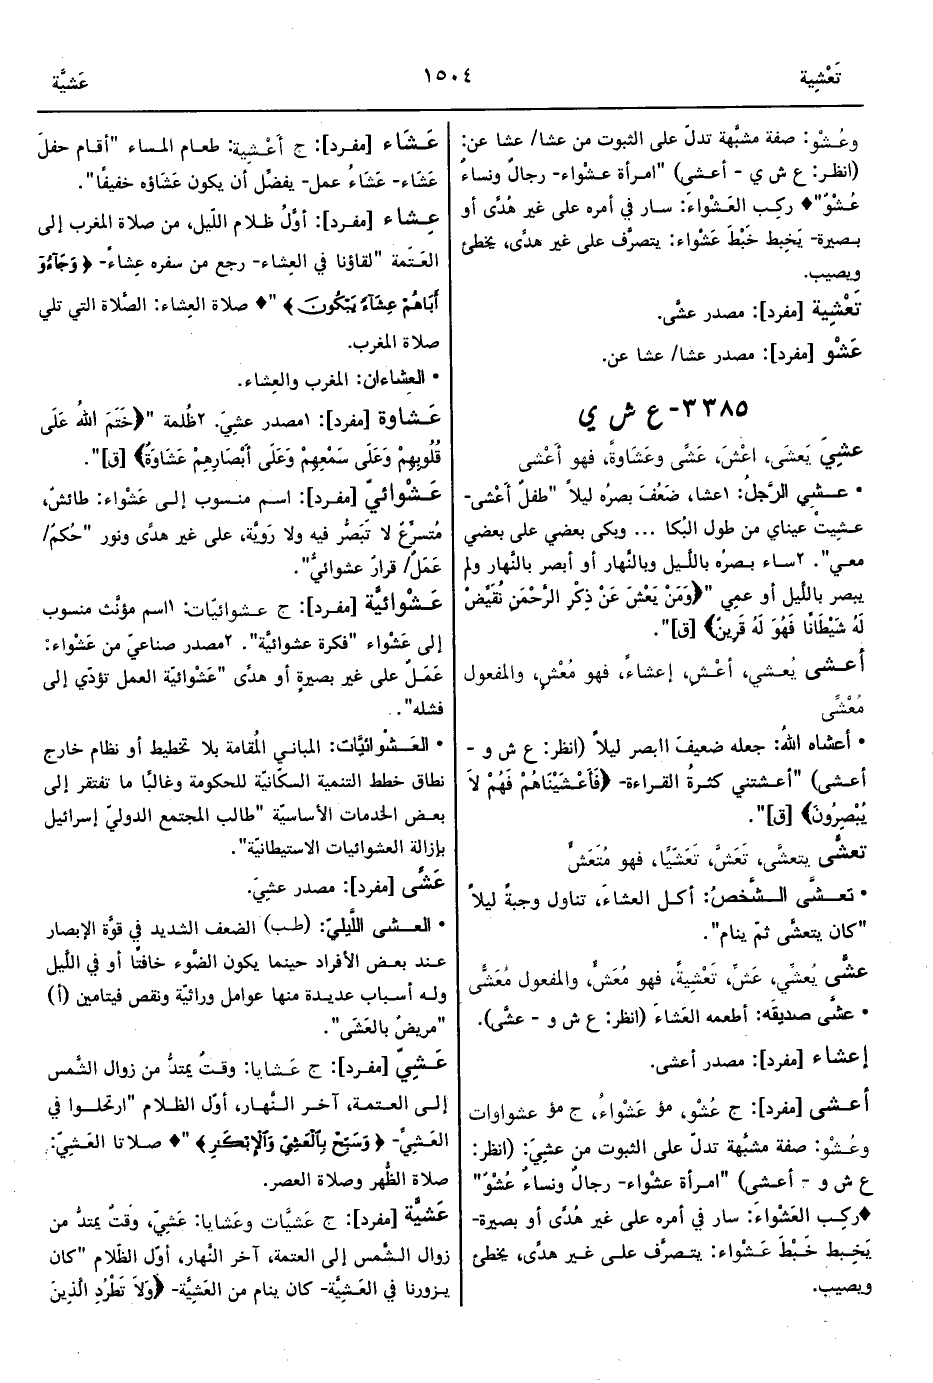 تَعْشِية
١٥٠٤
عَشيَّة
وعُشْو: صفة مشبَّهة تدلّ على الثبوت من عشا/ عشا عن:
(انظر: ع ش ي - أعشى) "امرأة عشواء- رجالٌ ونساءٌ
عُشْوٌ"♦ ركِب العَشْواءَ: سار في أمره على غير هُدًى أو
بصيرة- يَخبِط خَبْطَ عَشْواء: يتصرَّف على غير هدًى، يخطئ
ويصيب.
تَعْشِية [مفرد]: مصدر عشَّى.
عَشْو [مفرد]: مصدر عشا/ عشا عن.
٣٣٨٥- ع ش ي
عشِيَ يَعشَى، اعْشَ، عَشًى وعَشَاوةً، فهو أَعْشى
• عشِي الرَّجلُ: ١عشا، ضَعُفَ بصرُه ليلاً "طفلٌ أَعْشى-
عشيتْ عيناي من طول البُكا ... وبكى بعضي على بعضي
معي". ٢ساء بصرُه باللَّيل وبالنَّهار أو أبصر بالنَّهار ولم
يبصر باللَّيل أو عمِي "﴿وَمَنْ يَعْشَ عَنْ ذِكْرِ الرَّحْمَنِ نُقَيِّضْ
لَهُ شَيْطَانًا فَهُوَ لَهُ قَرِينٌ﴾ [ق]".
أعشى يُعشي، أعْشِ، إعشاءً، فهو مُعْشٍ، والمفعول
مُعْشًى
• أعشاه اللهُ: جعله ضعيفَ البصر ليلاً (انظر: ع ش و -
أعشى) "أعشتني كثرةُ القراءة- ﴿فَأَعْشَيْنَاهُمْ فَهُمْ لاَ
يُبْصِرُونَ﴾ [ق]".
تعشَّى يتعشَّى، تَعَشَّ، تَعَشّيًا، فهو مُتَعَشٍّ
• تعشَّى الشَّخصُ: أكل العشاءَ، تناول وجبةً ليلاً
"كان يتعشَّى ثمّ ينام".
عشَّى يُعشِّي، عَشِّ، تَعْشِيةً، فهو مُعَشٍّ، والمفعول مُعَشًّى
• عشَّى صديقَه: أطعمه العَشاءَ (انظر: ع ش و - عشَّى).
إعشاء [مفرد]: مصدر أعشى.
أعشى [مفرد]: ج عُشْو، مؤ عَشْواءُ، ج مؤ عشواوات
وعُشْو: صفة مشبَّهة تدلّ على الثبوت من عشِيَ: (انظر:
ع ش و - أعشى) "امرأة عشواء- رجالٌ ونساءٌ عُشْوٌ"
♦ركِب العَشْواءَ: سار في أمره على غير هُدًى أو بصيرة-
يَخبِط خَبْطَ عَشْواء: يتصرَّف على غير هدًى، يخطئ
ويصيب.
عَشَاء [مفرد]: ج أَعْشِية: طعام المساء "أقام حفلَ
عَشَاء- عَشَاءُ عمل- يفضِّل أن يكون عَشَاؤه خفيفًا".
عِشاء [مفرد]: أوَّلُ ظلام اللَّيل، من صلاة المغرب إلى
العَتَمة "لقاؤنا في العِشاء- رجع من سفره عِشاءً- ﴿وَجَاءُو
أَبَاهُمْ عِشَاءً يَبْكُونَ﴾"♦ صلاة العِشاء: الصَّلاة التي تلي
صلاة المغرب.
• العِشاءان: المغرب والعِشاء.
عَشاوة [مفرد]: ١مصدر عشِيَ. ٢ظُلمة "﴿خَتَمَ اللهُ عَلَى
قُلُوبِهِمْ وَعَلَى سَمْعِهِمْ وَعَلَى أَبْصَارِهِمْ عَشَاوَةٌ﴾ [ق]".
عَشْوائيّ [مفرد]: اسم منسوب إلى عَشْواء: طائش،
مُتسرِّعٌ لا تَبَصُّر فيه ولا رَوِيَّة، على غير هدًى ونور "حُكمٌ/
عَمَلٌ/ قرارٌ عشوائيٌّ".
عَشْوائيَّة [مفرد]: ج عشوائيّات: ١اسم مؤنَّث منسوب
إلى عَشْواء "فكرة عشوائيَّة". ٢مصدر صناعيّ من عَشْواء:
عَمَلٌ على غير بصيرةٍ أو هدًى "عَشْوائيّة العمل تؤدّي إلى
فشله".
• العَشْوائيَّات: المباني المُقامة بلا تخطيط أو نظام خارج
نطاق خطط التنمية السكّانيّة للحكومة وغالبًا ما تفتقر إلى
بعض الخدمات الأساسيّة "طالب المجتمع الدوليّ إسرائيل
بإزالة العشوائيات الاستيطانيّة".
عَشًى [مفرد]: مصدر عشِيَ.
• العشى اللَّيليّ: (طب) الضعف الشديد في قوَّة الإبصار
عند بعض الأفراد حينما يكون الضَّوء خافتًا أو في اللَّيل
وله أسباب عديدة منها عوامل وراثيَّة ونقص فيتامين (أ)
"مريضٌ بالعَشَى".
عَشِيّ [مفرد]: ج عَشايا: وقتٌ يمتدُّ من زوال الشَّمس
إلى العتمة، آخر النَّهار، أوّل الظلام "ارتحلوا في
العَشِيِّ- ﴿وَسَبِّحْ بِالْعَشِيِّ وَالْإِبْكَارِ﴾"♦ صلاتا العَشِيّ:
صلاة الظُّهر وصلاة العصر.
عَشيَّة [مفرد]: ج عَشيَّات وعَشايا: عَشِيّ، وقتٌ يمتدُّ من
زوال الشَّمس إلى العتمة، آخر النَّهار، أوّل الظَّلام "كان
يزورنا في العَشِيَّة- كان ينام من العَشِيَّة- ﴿وَلاَ تَطْرُدِ الَّذِينَ